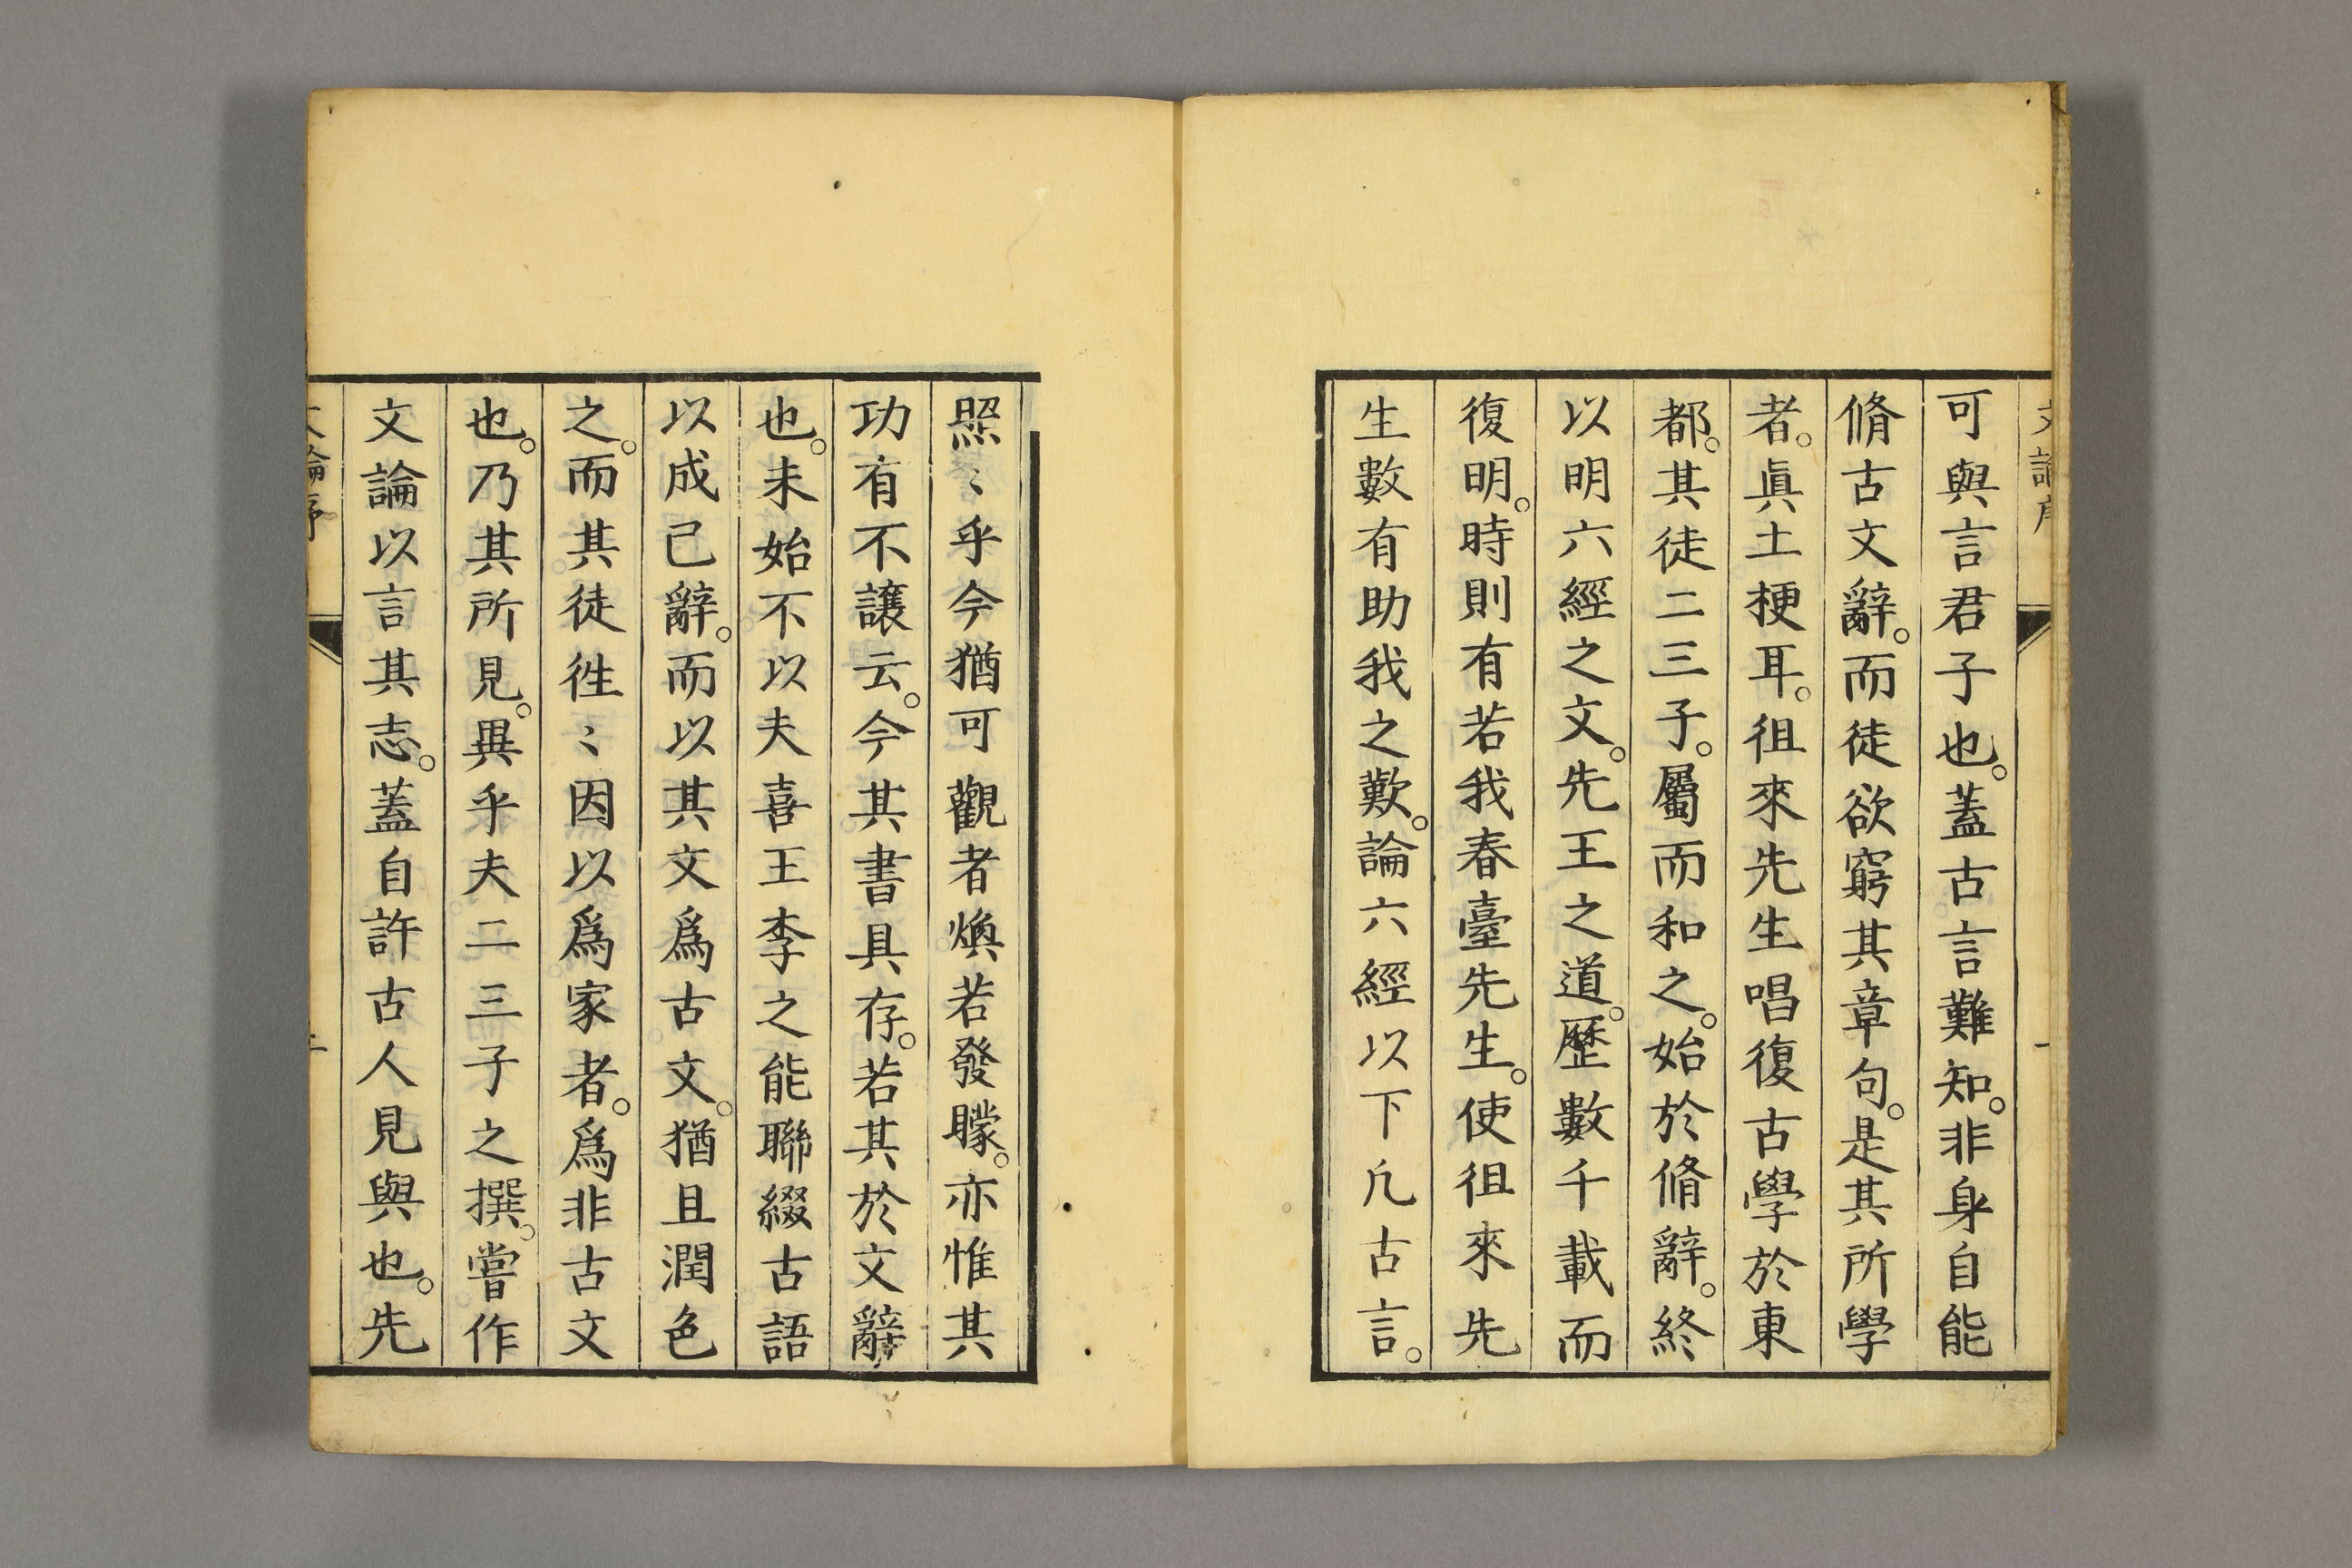 可與言君子也。蓋古言難知。非身自能
脩古文辭。而徒欲窮其章句。是其所學
者。眞土梗耳。徂來先生唱復古學於東
都。其徒二三子。屬而和之。始於脩辭。終
以明六經之文。先王之道。歷數千載而
復明。時則有若我春臺先生。使徂來先
生數有助我之歎。論六經以下凢古言。
照〻乎今猶可觀者煥若發矇。亦惟其
功有不讓云。今其書具存。若其於文辭
也。未始不以夫喜王李之能聯綴古語
以成己辭。而以其文爲古文。猶且潤色
之。而其徒徃〻因以爲家者。爲非古文
也。乃其所見。異乎夫二三子之撰。嘗作
文論以言其志。蓋自許古人見與也。先
文論序
二